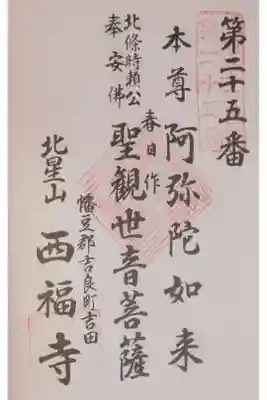 第二十五番
本尊 阿弥陀如来
春日作
聖観世音菩薩
北條時頼公
奉安佛
幡豆郡吉良町吉田
北星山 西福寺